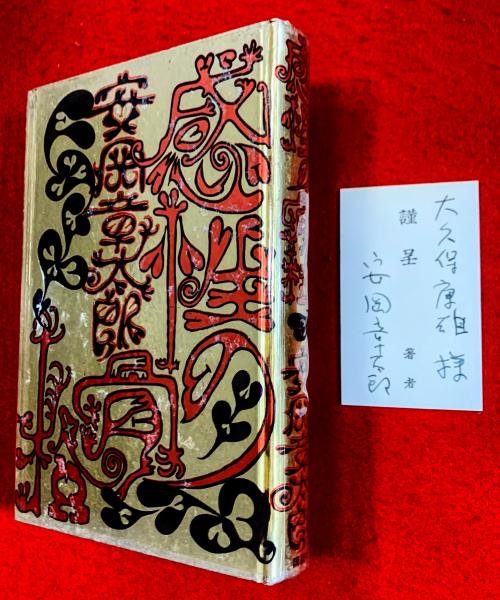 感性の骨格
安岡章太郎
感性の骨格 安岡章太郎
大久保康雄 様
謹呈 著者
安岡章太郎